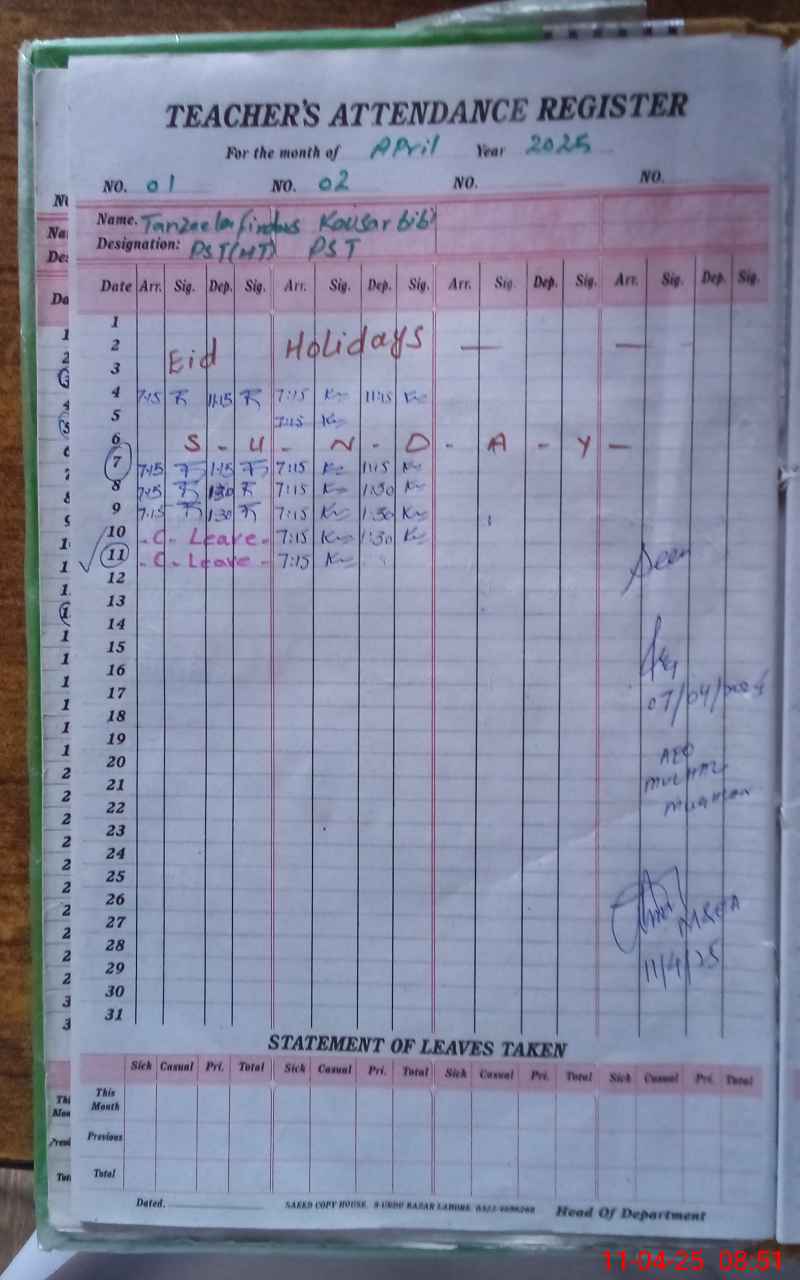 TEACHER'S ATTENDANCE REGISTER
For the month of April Year 2025
NO. 01 NO. 02 NO. NO.
Name. Tanzeela firdous Kousar bibi
Designation: PST(HT) PST
Date Arr. Sig. Dep. Sig. Arr. Sig. Dep. Sig. Arr. Sig. Dep. Sig. Arr. Sig. Dep. Sig.
1
2 Eid Holidays — —
3
4 7:15 11:15 7:15 11:15
5 7:15
6 S - U - N - D - A - Y -
7 7:15 1:15 7:15 1:15
8 7:15 1:30 7:15 1:30
9 7:15 1:30 7:15 1:30
10 - C - Leave - 7:15 1:30
11 - C - Leave - 7:15
12
Seen
13
14
15
16
17
07/04/2025
18
19
20
AEO
21
22
23
24
25
26
27
MSEA
28
29
11/4/25
30
31
STATEMENT OF LEAVES TAKEN
Sick Casual Pri. Total Sick Casual Pri. Total Sick Casual Pri. Total Sick Casual Pri. Total
This
Month
Previous
Total
Dated.
SAEED COPY HOUSE. 8-URDU BAZAR LAHORE.
Head Of Department
11-04-25 08:51